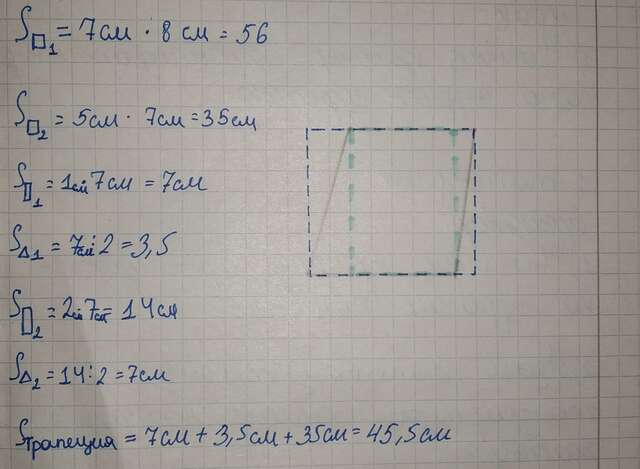 S□1 = 7см · 8 см = 56
S□2 = 5см · 7см = 35см
S▯1 = 1см 7см = 7см
S△1 = 7см : 2 = 3,5
S▯2 = 2см 7см = 14см
S△2 = 14 : 2 = 7см
Sтрапеция = 7см + 3,5см + 35см = 45,5см